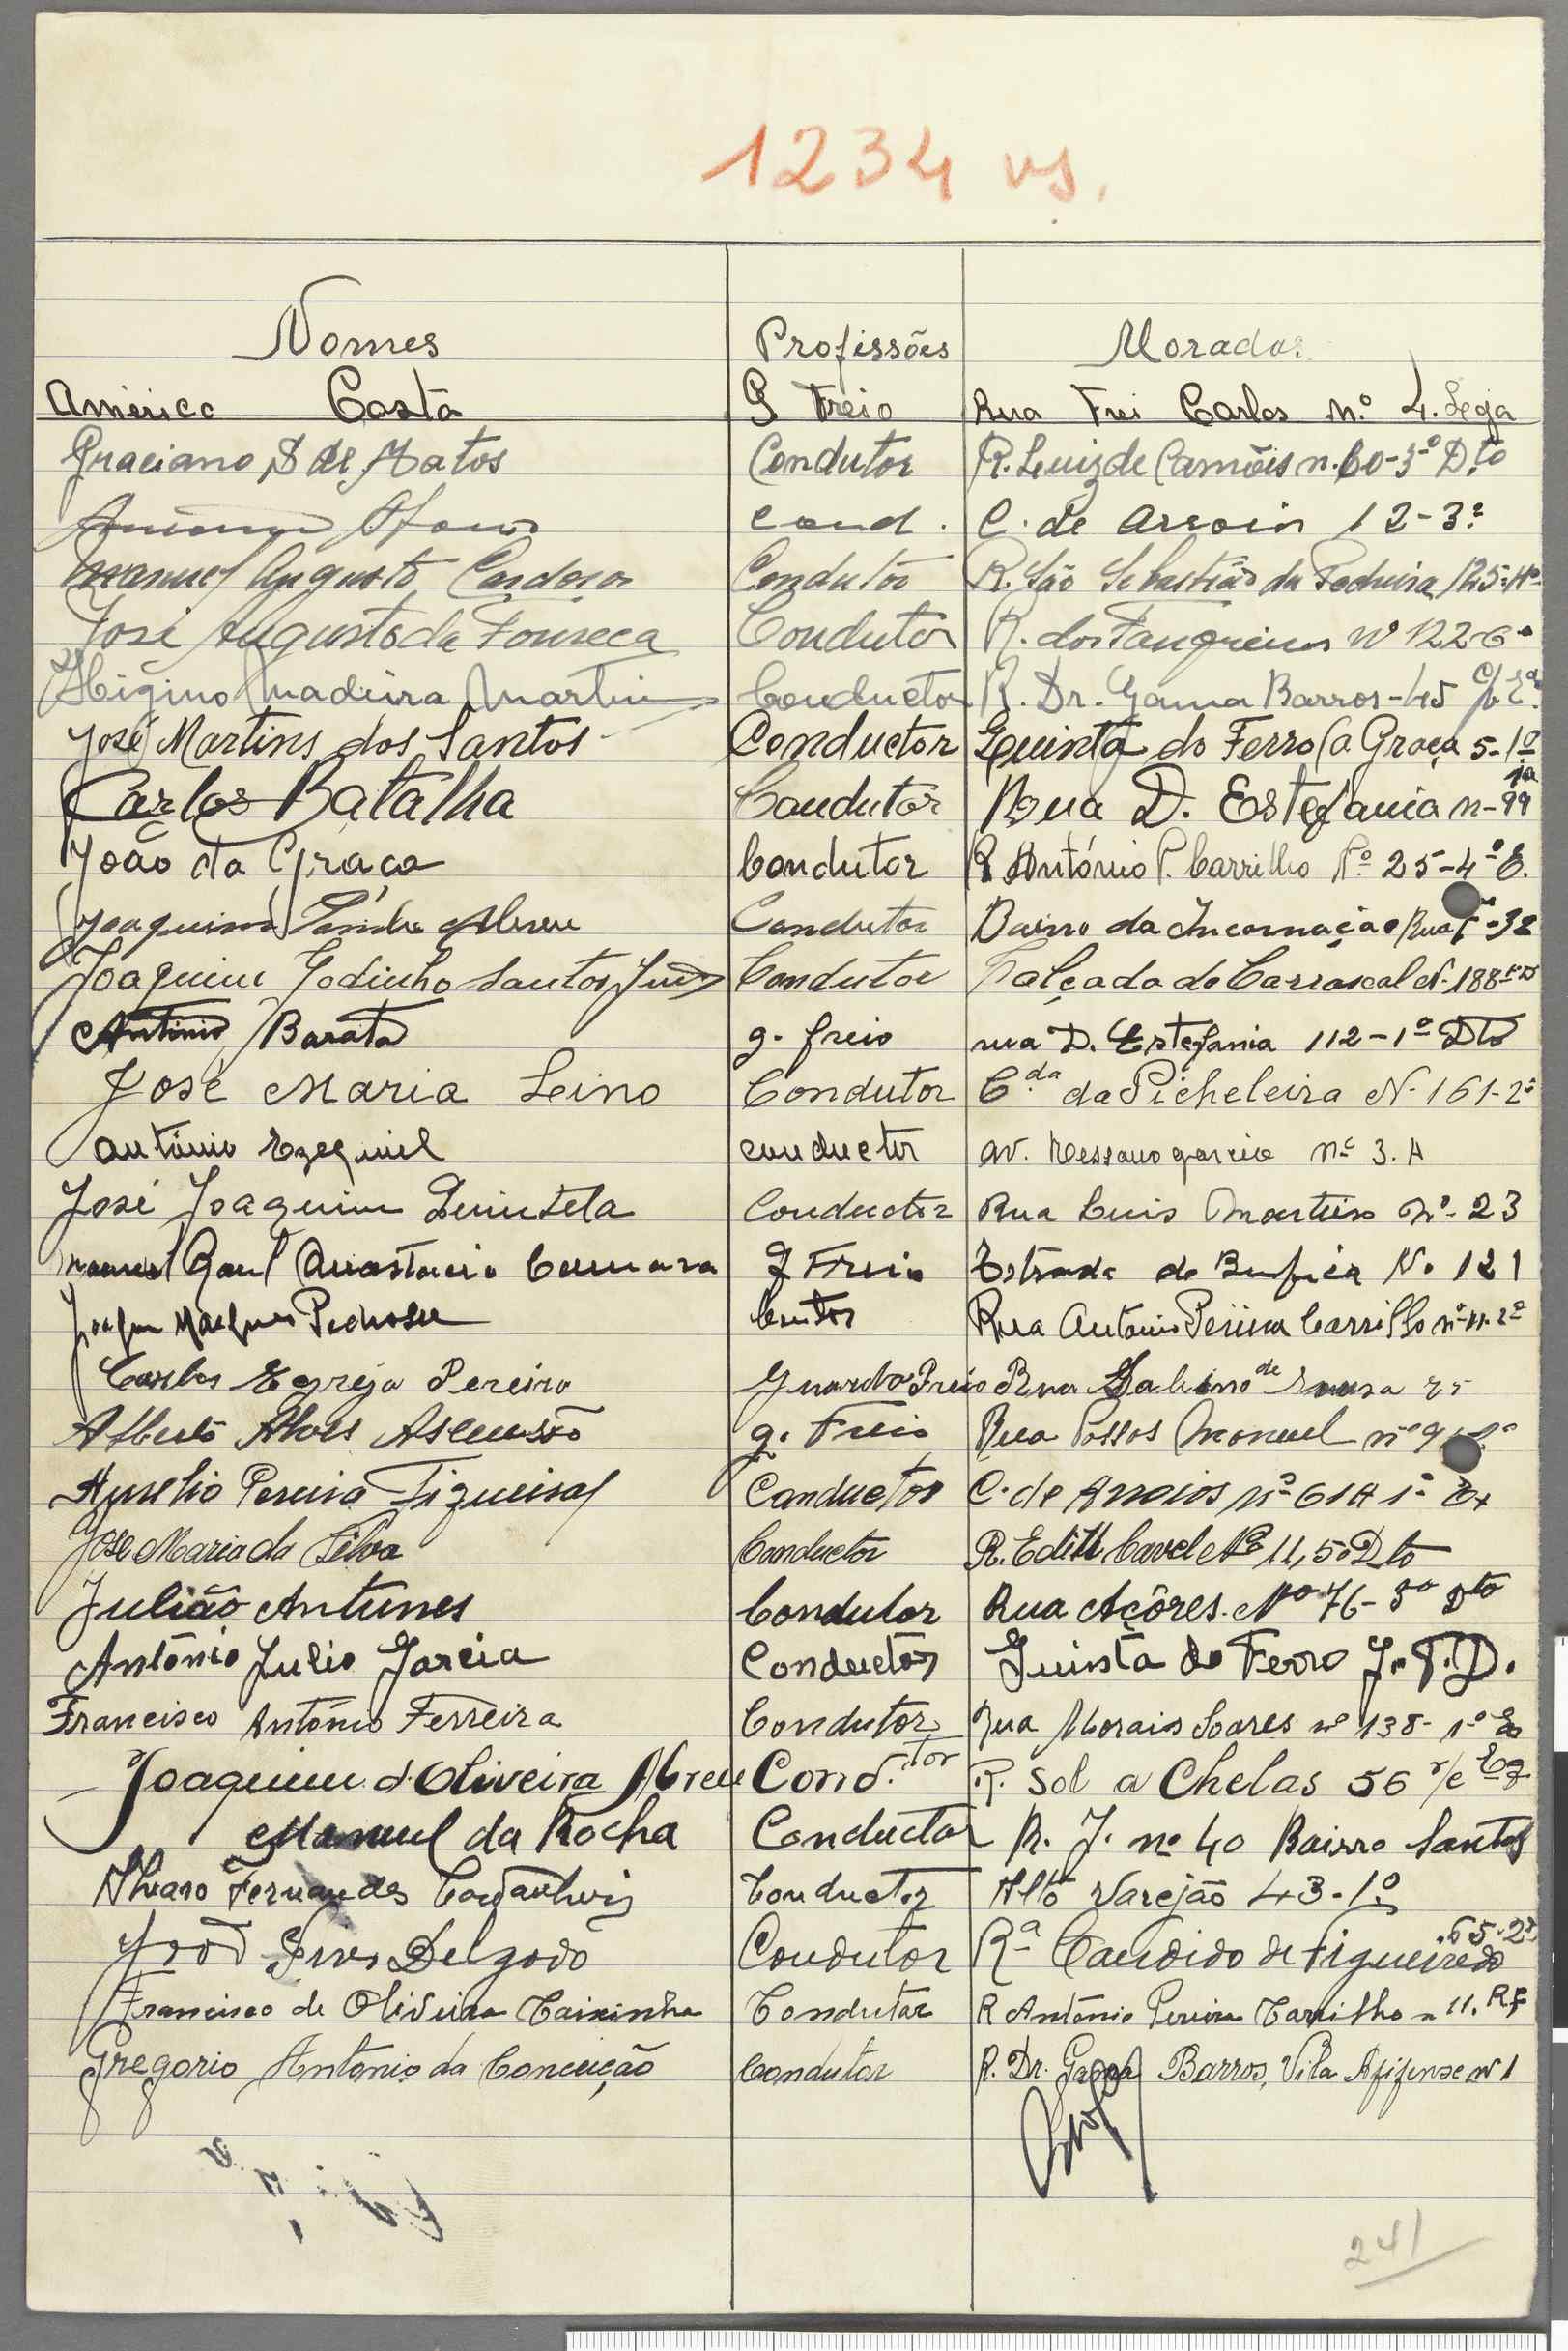 1234 vs.
Nomes Profissões Moradas
Américo Costa G Freio Rua Frei Carlos n.º 4. Loja
Graciano S de Matos Condutor R. Luiz de Camõis n. 60-3º D.to
Afonso Cond. C. de Arroin 12-3º
Manuel Augusto Cardoso Condutor R. São Sebastião da Pedreira 125-4º
José Augusto da Fonseca Condutor R. dos Fanqueiros Nº 122-6º
Higino Madeira Martins Conductor R. Dr. Gama Barros-45
José Martins dos Santos Conductor Quinta do Ferro (a Graça 5-1º
Carlos Batalha Condutor Rua D. Estefania n-99
João da Graça Condutor R António P. Carrilho Nº 25-4º E.
Joaquim Abreu Condutor Bairro da Incarnação Rua 38
Joaquim Godinho Santos Condutor Calçada do Carrascal N. 188
Antonio Barata g. freio rua D. Estefania 112-1º Dto
José Maria Leino Condutor C.da da Picheleira N. 161-2º
António Ezequiel conductor av. Ressano garcia nº 3. A
José Joaquim Quintela Conductor Rua Luis Monteiro Nº 23
Manuel Raul Anastacio Camara G Freio Estrada de Benfica No 121
Pedrosa Rua Antonio Pereira Carrilho nº 11-2º
Carlos Egreja Pereira Guarda Freio Rua Sabino de Sousa
Alberto Alves Ascensão g. Freio Rua Passos Manuel nº 9
Aurelio Pereira Figueiral Conductor C. de Arroios nº 61A 1º
José Maria da Silva Conductor R. Edith Cavel Nº 11, 5º Dto
Julião Antunes Condutor Rua Açôres. Nº 76-3º Dto
António Julio Garcia Conductor Quinta do Ferro J. T. D.
Francisco António Ferreira Condutor Rua Morais Soares nº 138-1º
Joaquim d'Oliveira Abreu Cond.tor R. Sol a Chelas 56 r/c Esq
Manuel da Rocha Conductor R. J. nº 40 Bairro Santos
Alvaro Fernandes Conductor Alto Varejão 43-1º
Delgado Condutor Rª Candido de Figueiredo 65-2º
Francisco de Oliveira Caixinha Condutor R António Pereira Carrilho n 11. R
Gregorio Antonio da Conceição Condutor R. Dr. Gama Barros, Vila Afifense nº 1
241